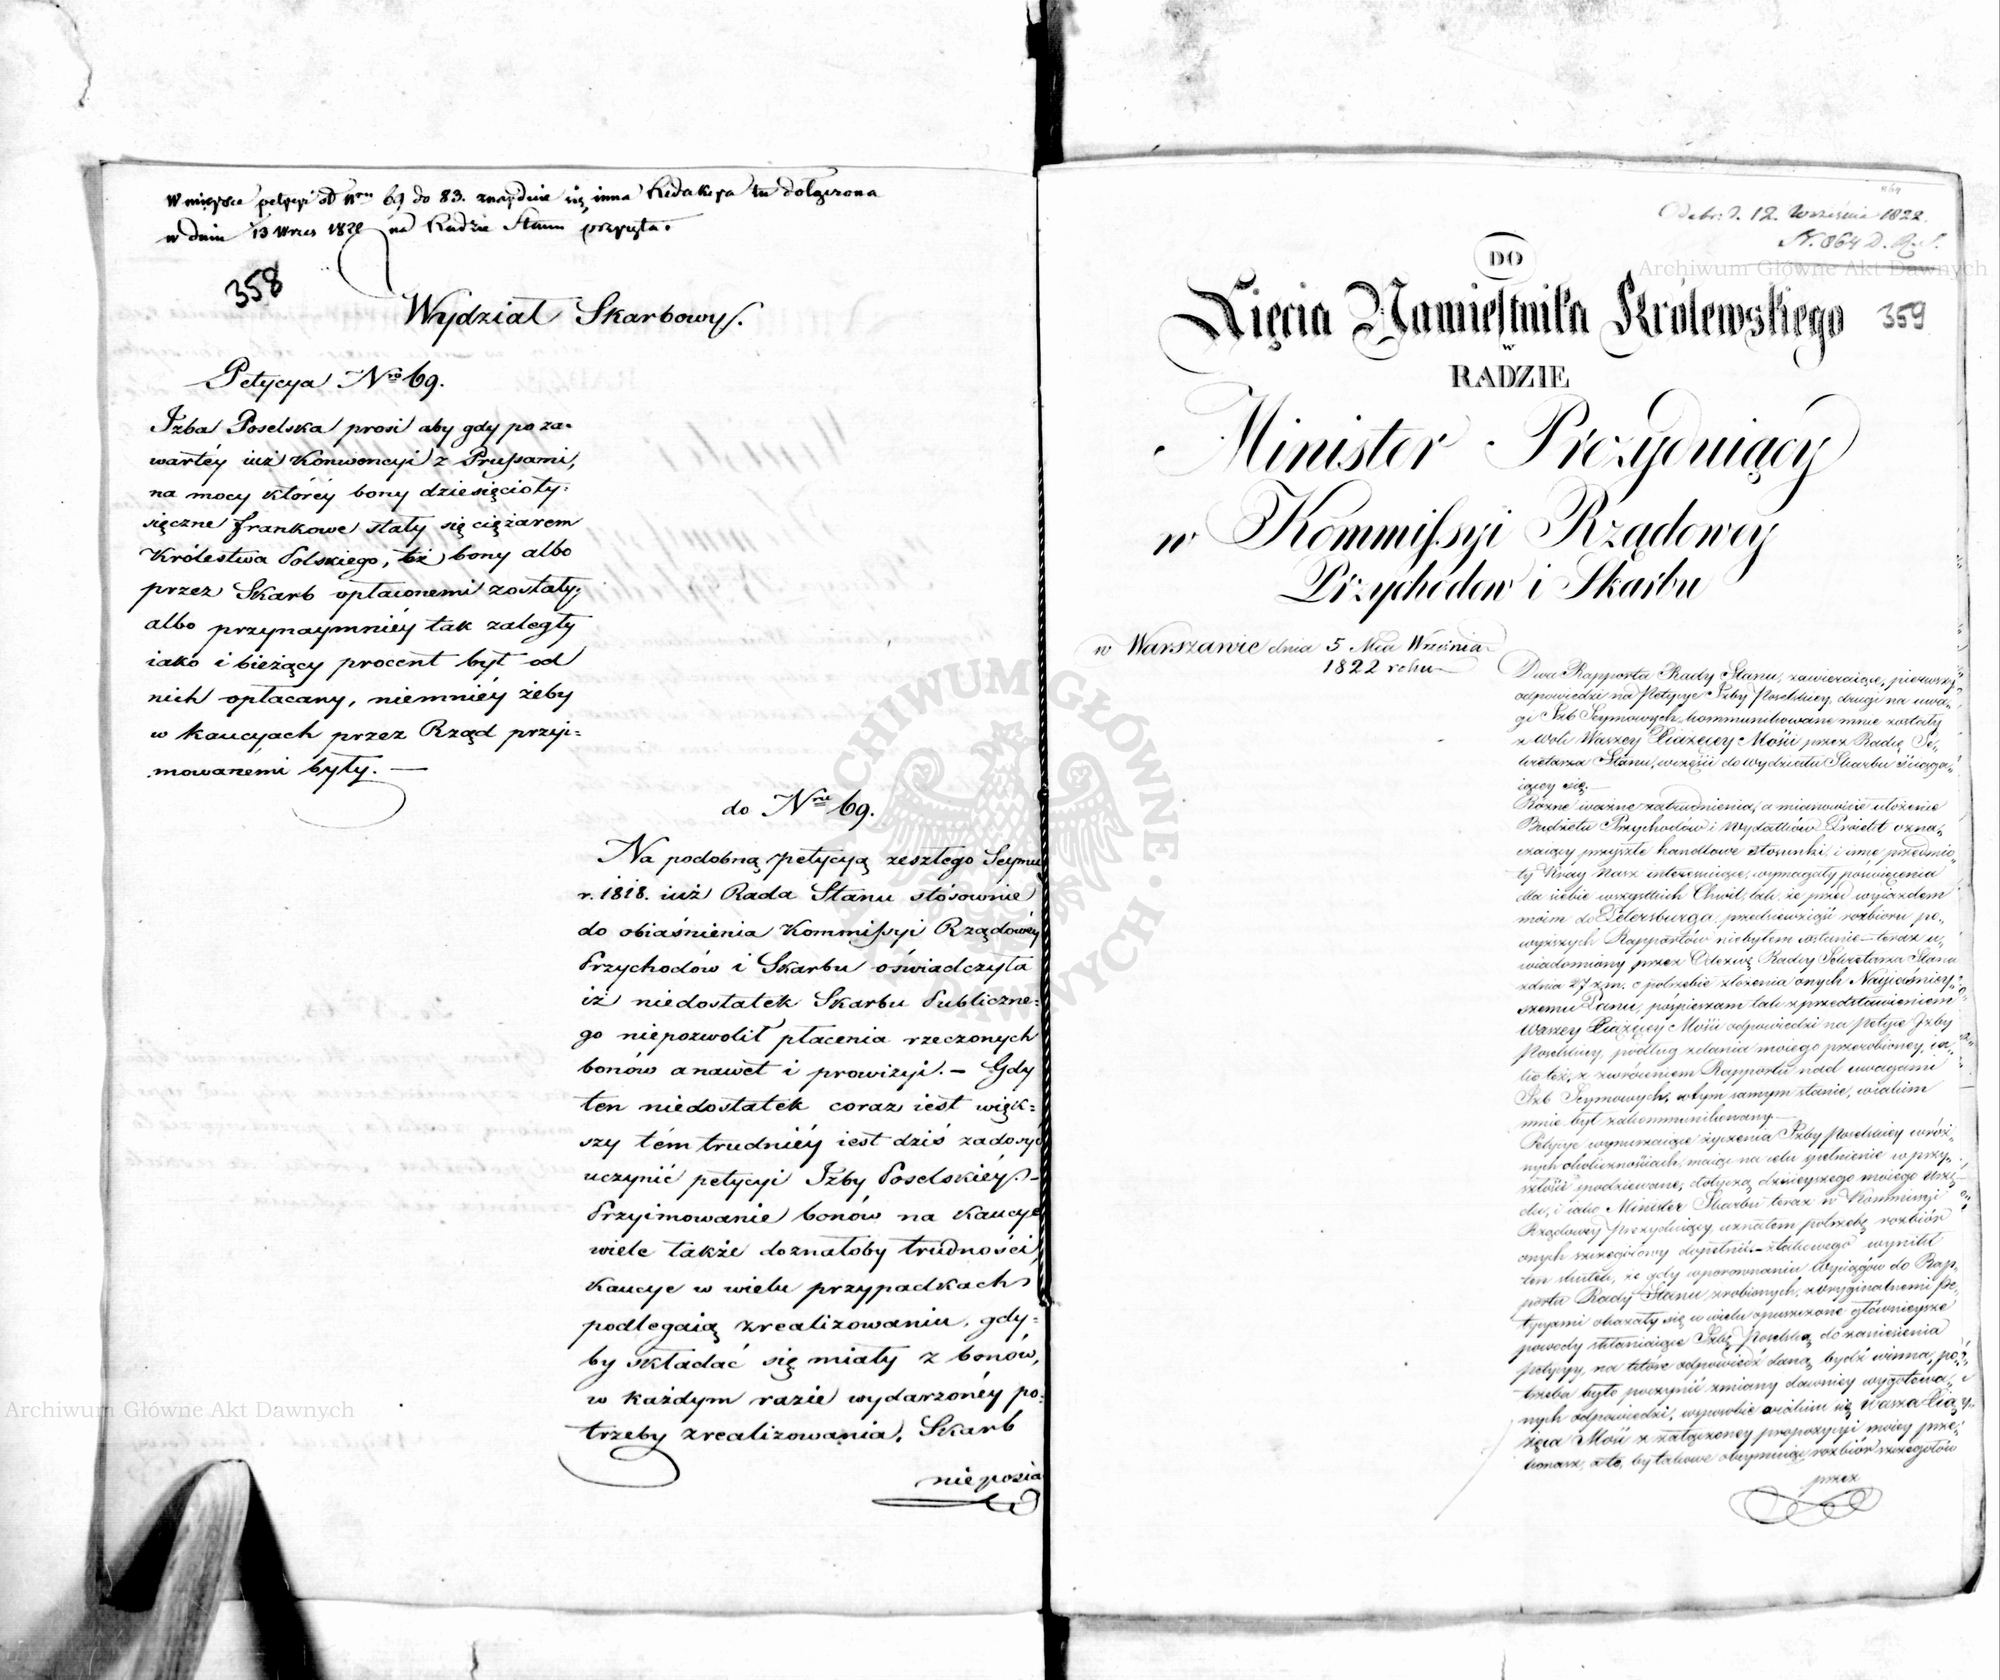 W mieysce petycyi od Nru 69 do 83. znaydzie się inna Redakcya tu dołączona
w dniu 13 Wrześ 1822 na Radzie Stanu przyięta.
358
Wydział Skarbowy.
Petycya Nro 69.
Izba Poselska prosi aby gdy po za-
wartéy iuż Konwencyi z Prussami,
na mocy któréy bony dziesięcioty-
sięczne frankowe stały się ciężarem
Królestwa Polskiego, też bony albo
przez Skarb opłaconemi zostały,
albo przynaymniéy tak zaległy
iako i bieżący procent był od
nich opłacany, niemniéy żeby
w kaucyach przez Rząd przyi-
mowanemi były. —
do Nru 69.
Na podobną petycyą zeszłego Seymu
r. 1818. iuż Rada Stanu stósownie
do obiaśnienia Kommissyi Rządowéy
Przychodów i Skarbu oświadczyła
iż niedostatek Skarbu Publiczne-
go niepozwolił płacenia rzeczonych
bonów a nawet i prowizyi. — Gdy
ten niedostatek coraz iest więk-
szy tém trudniéy iest dziś zadosyć
uczynić petycyi Izby Poselskiéy. —
Przyimowanie bonów na kaucye
wiele także doznałoby trudności,
Kaucye w wielu przypadkach
podlegaią zrealizowaniu, gdy-
by składać się miały z bonów,
w każdym razie wydarzonéy po-
trzeby zrealizowania, Skarb
nieposia
Odebr: d. 12. Września 1822.
N. 864 D. R. S.
359
DO
Xięcia Namiestnika Królewskiego
w
RADZIE
Minister Prezyduiący
w Kommissyi Rządowey
Przychodow i Skarbu
w Warszawie dnia 5 Mca Września
1822 roku
Dwa Rapporta Rady Stanu, zawieraiące, pierwszy
odpowiedzi na Petycye Izby Poselskiey, drugi na uwa-
gi Izb Seymowych, kommunikowane mnie zostały
z woli Waszey Xiążęcey Mości przez Radcę Se-
kretarza Stanu, w części do Wydziału Skarbu ściąga-
iącey się.
Różne ważne zatrudnienia, a mianowicie ułożenie
Budżetu Przychodów i Wydatków, Proiekt ozna-
czaiący przyszłe handlowe stosunki, i inne przedmio-
ty Kray Nasz interessuiące, wymagały poświęcenia
dla siebie wszystkich Chwil, tak, że przed wyiazdem
moim do Petersburga, przedsięwziąść rozbioru po-
wyższych Rapportów niebyłem wstanie — teraz u-
wiadomiony przez Odezwę Radcy Sekretarza Stanu
z dnia 27 z.m. o potrzebie złożenia onych Nayiaśniey-
szemu Panu, pośpieszam tak z przedstawieniem
Waszey Xiążęcey Mości odpowiedzi na Petycye Izby
Poselskiey, podług zdania moiego przerobioney, ia-
ko też, z zwróceniem Rapportu nad uwagami
Izb Seymowych, w tym samym stanie, w iakim
mnie był zakommunikowany. —
Petycye wynurzaiące życzenia Izby Poselskiey w róż-
nych okolicznościach, maiąc na celu spełnienie w przy-
szłości spodziewane, dotyczą dzisieyszego moiego Urzę-
du, i iako Minister Skarbu teraz w Kommissyi
Rządowey prezyduiący, uznałem potrzebę rozbiór
onych szczegółowy dopełnić. — z takowego wynikł
ten skutek, że gdy w porównaniu Wyciągów do Rap-
portu Rady Stanu zrobionych, z oryginalnemi Pe-
tycyami okazały się w wielu opuszczone głównieysze
powody skłaniaiące Izbę Poselską do zaniesienia
petycyy, na które odpowiedź daną bydź winna, po-
trzeba było poczynić zmiany dawniey wygotowa-
nych odpowiedzi, w sposobie w iakim się Wasza Xią-
żęca Mość z załączoney propozycyi moiey prze-
konasz, a to, by takowe obeymuiąc rozbiór szczegółów
przez